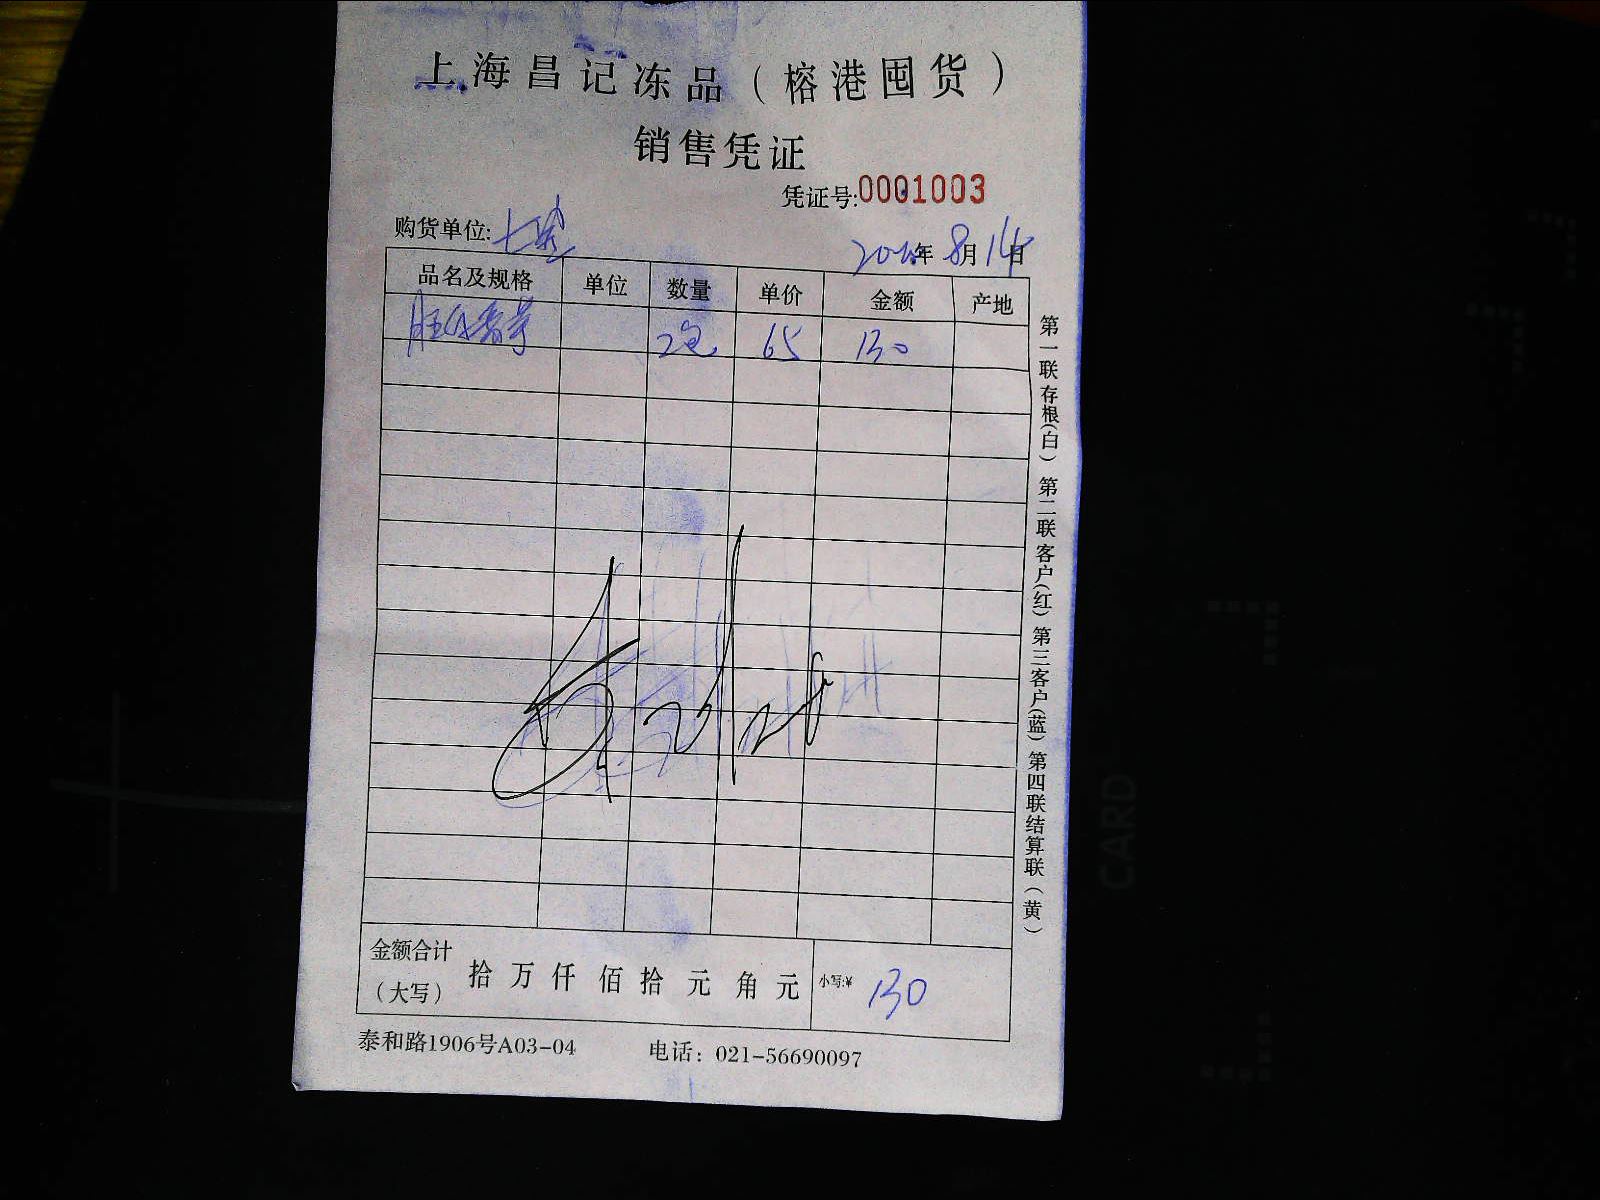 上海昌记冻品（榕港囤货）
销售凭证
凭证号:0001003
购货单位:
年 8月14日
品名及规格 单位 数量 单价 金额 产地
2包 65 130
金额合计（大写） 拾 万 仟 佰 拾 元 角 元 小写:¥ 130
泰和路1906号A03-04 电话：021-56690097
第一联存根(白) 第二联客户(红) 第三客户(蓝) 第四联结算联（黄）
CARD